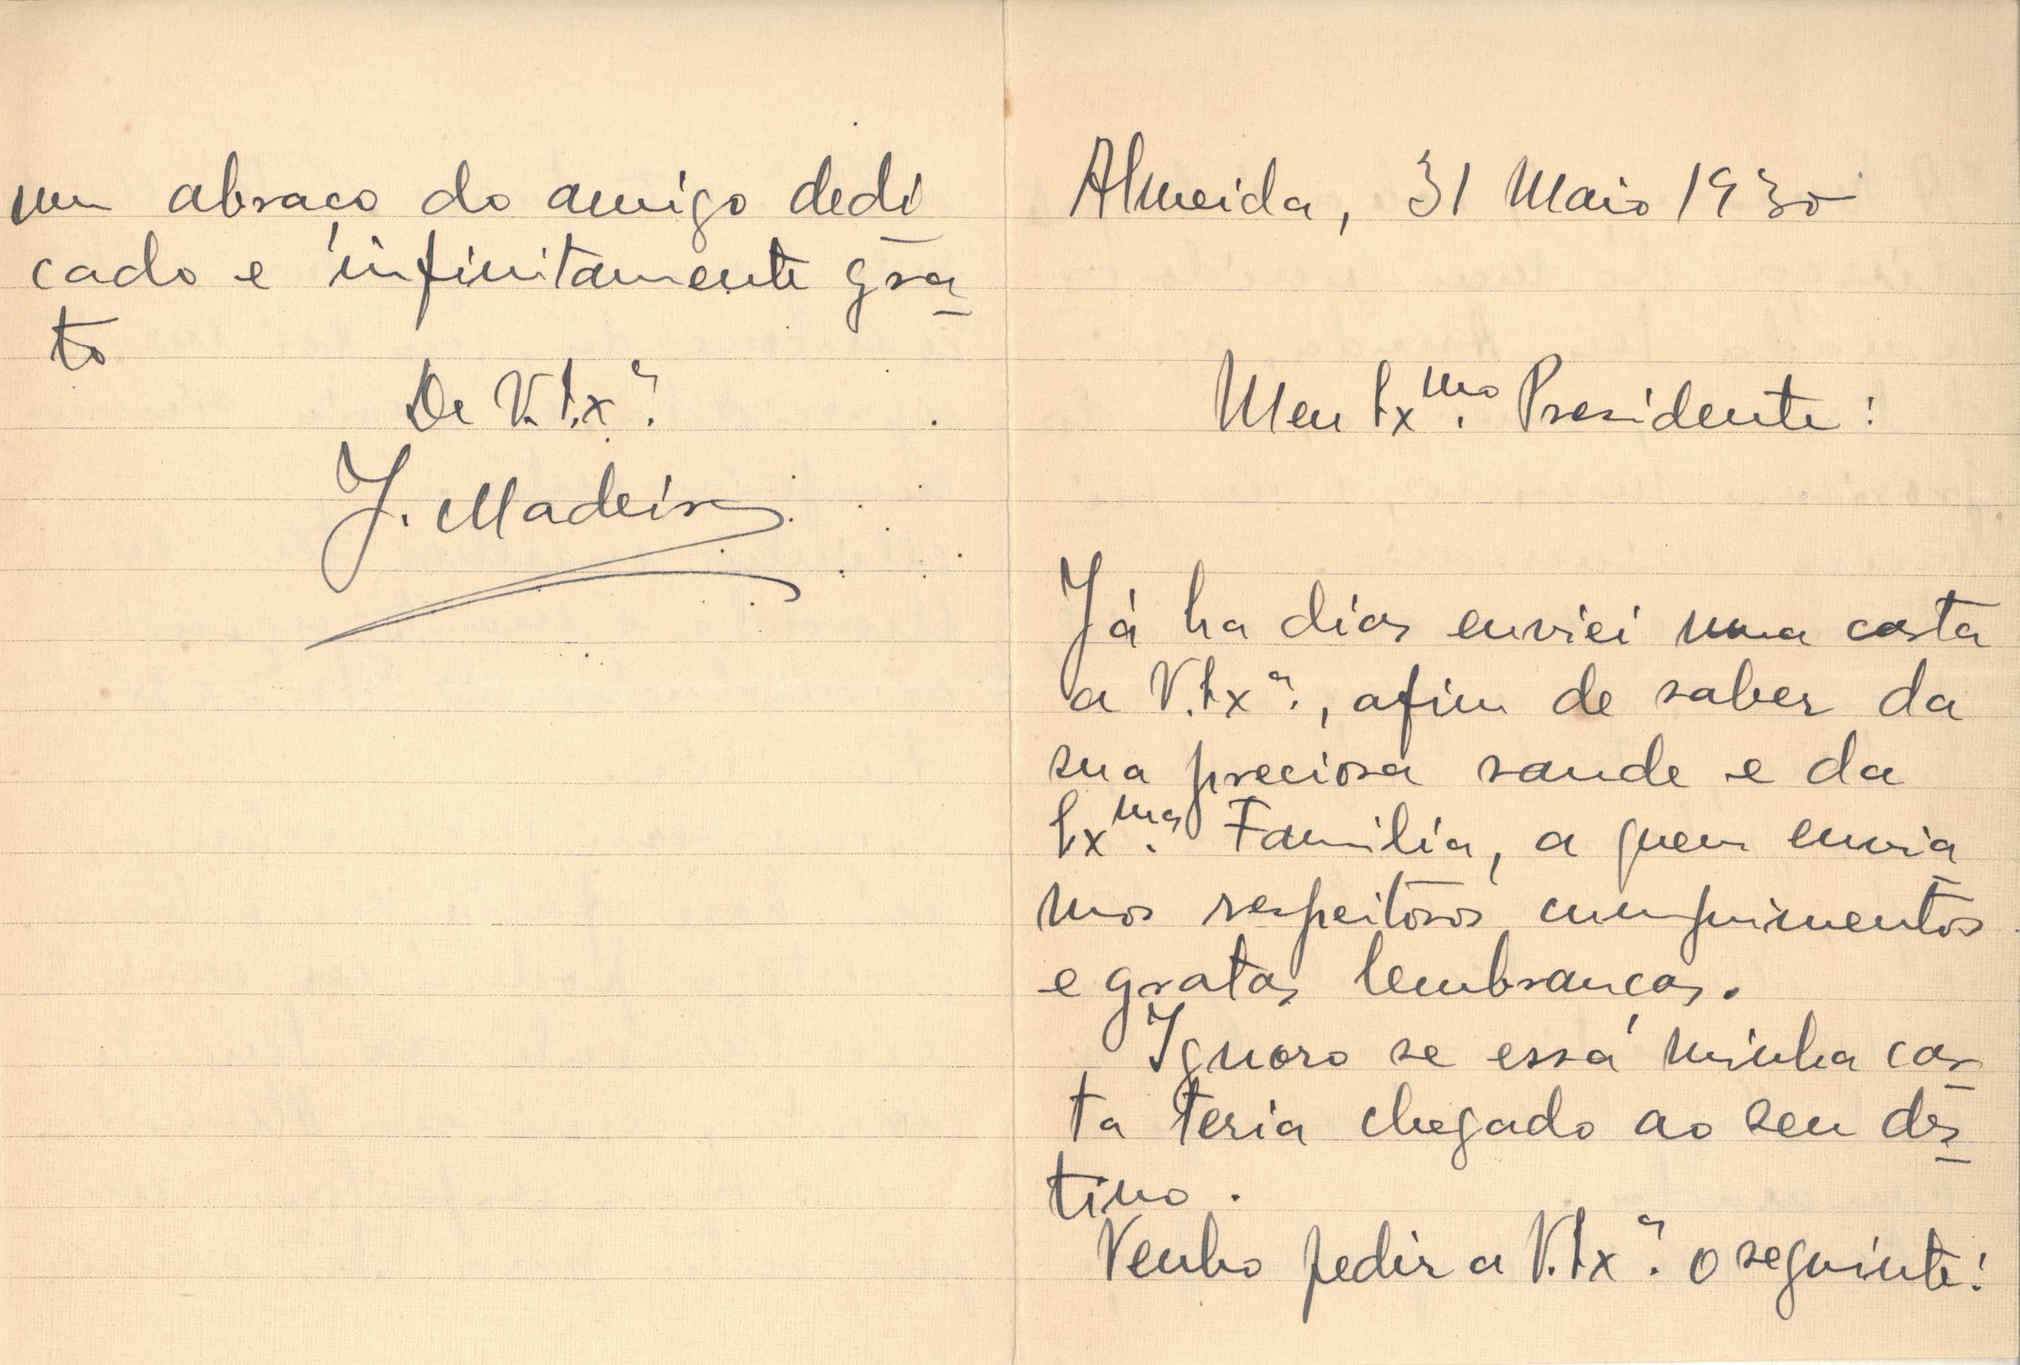 um abraço do amigo dedi
cado e infinitamente gra-
to
De V. Exª.
J. Madeira
Almeida, 31 Maio 1930
Meu Exmo. Presidente:
Já ha dias enviei uma carta
a V. Exª., afim de saber da
sua preciosa saude e da
Exma. Familia, a quem envia-
mos respeitosos cumprimentos
e gratas lembranças.
Ignoro se essa minha car-
ta teria chegado ao seu des-
tino.
Venho pedir a V. Exª. o seguinte: